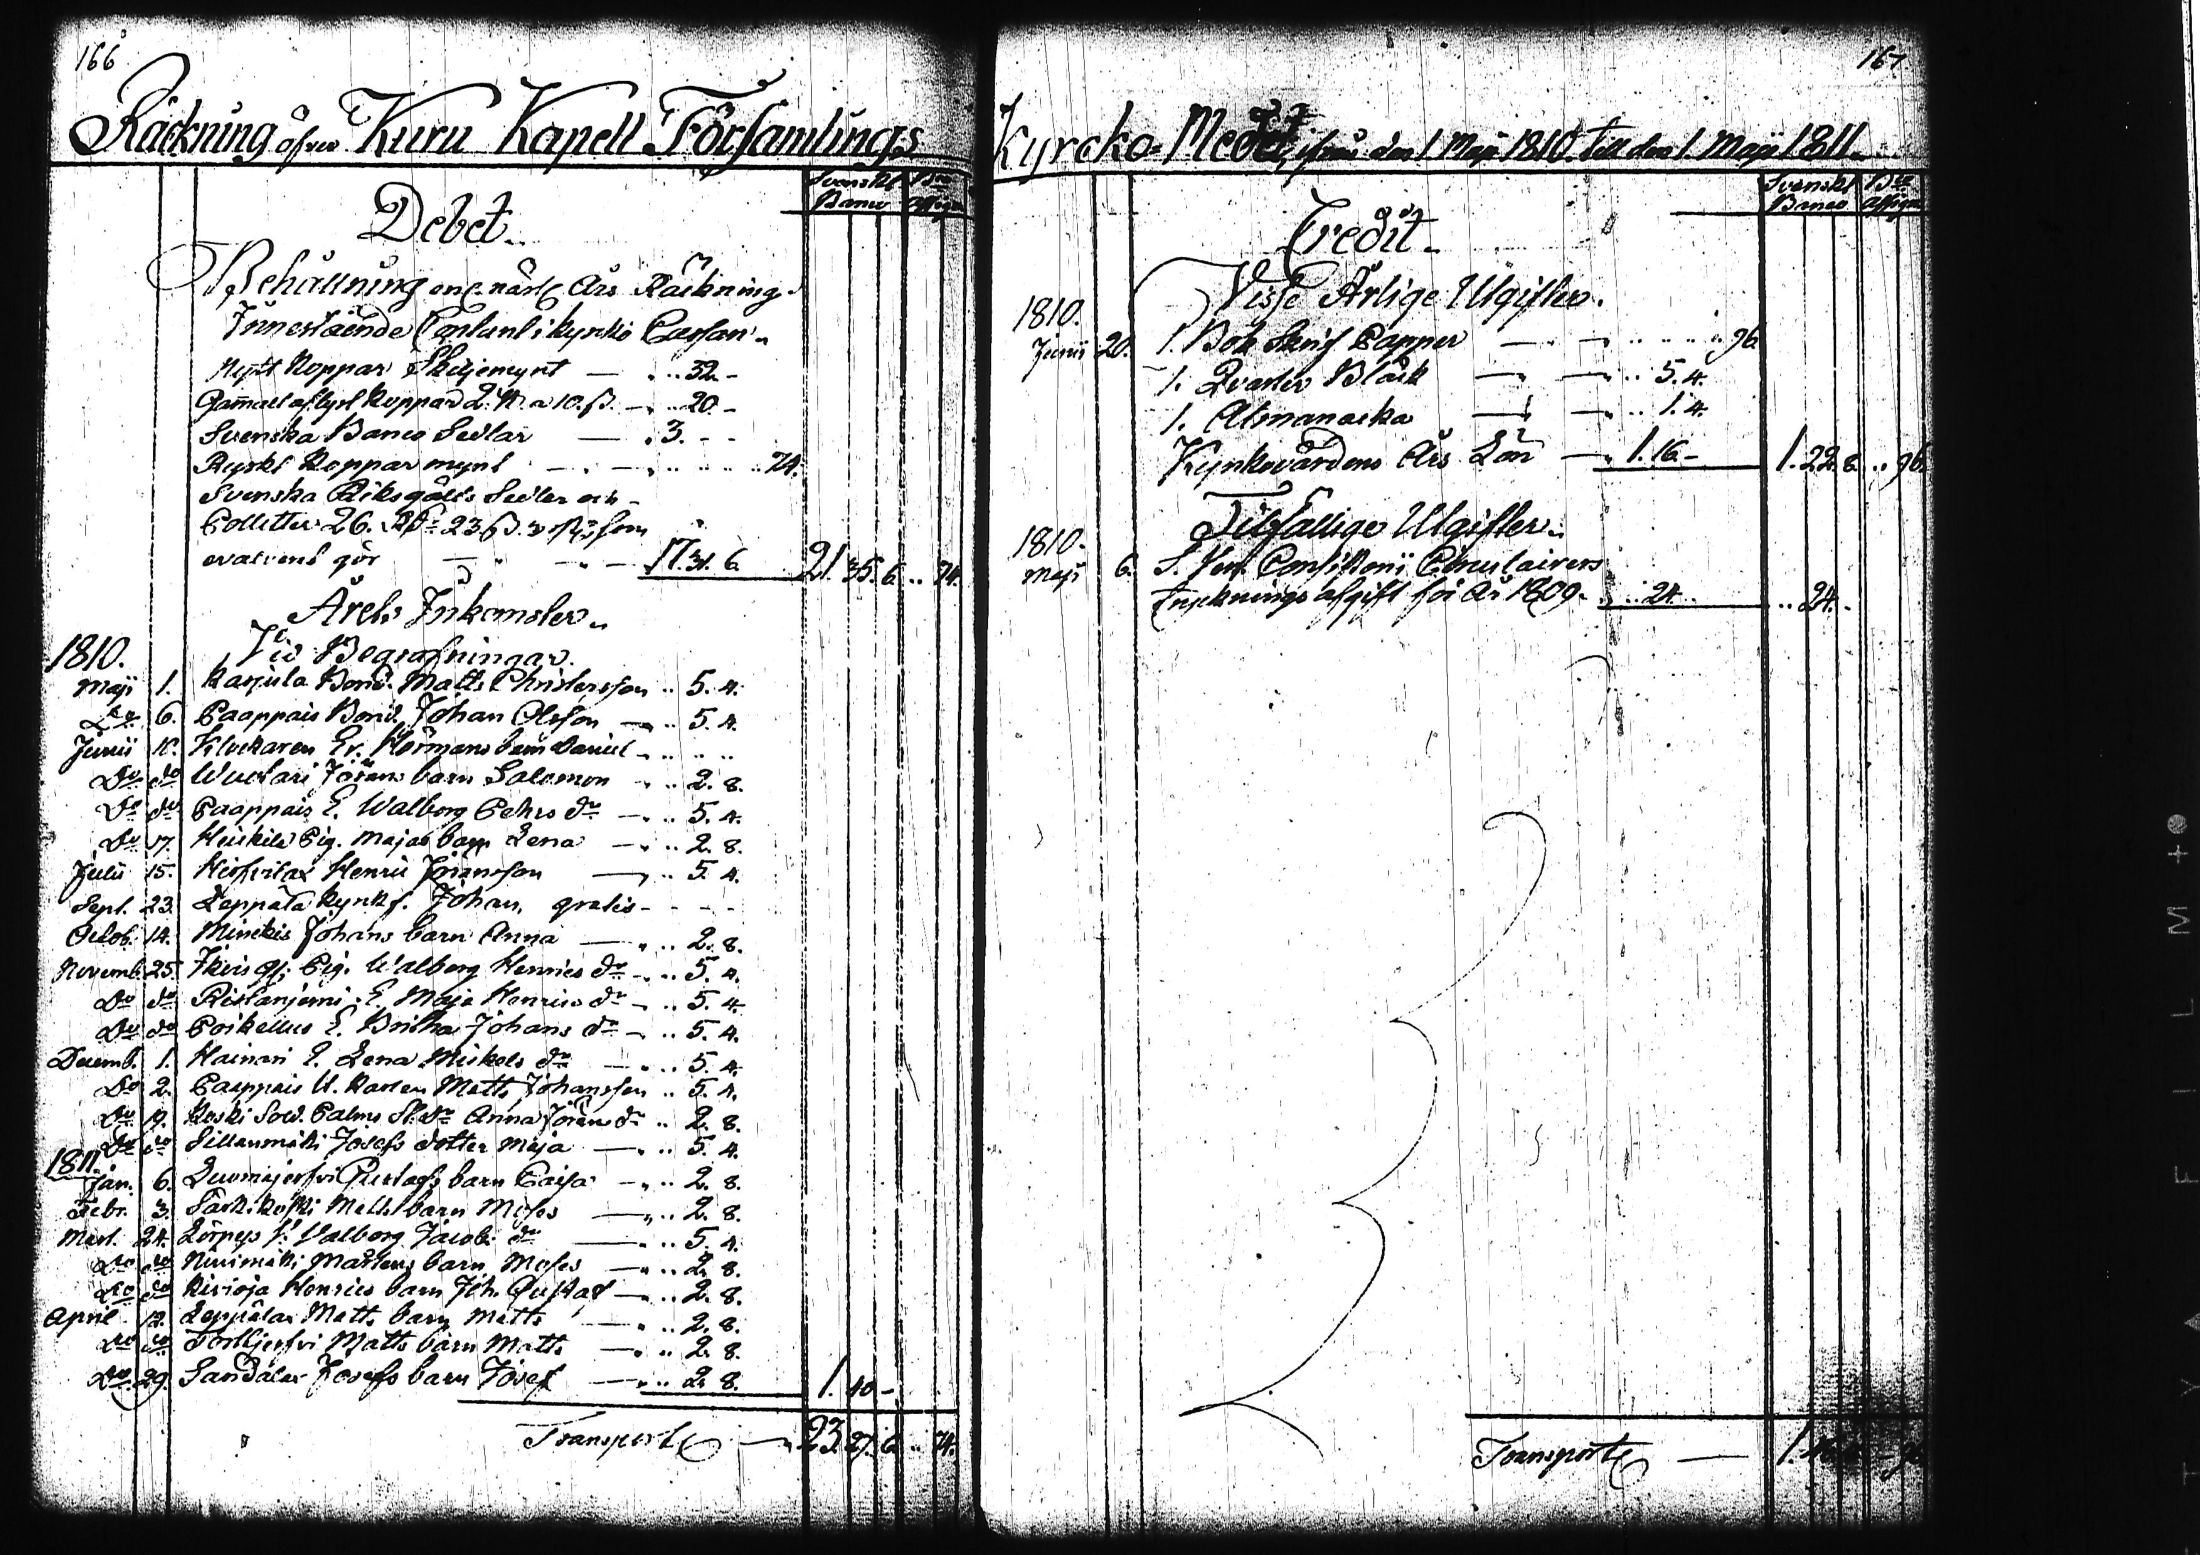 166
Räckning öfver Kuru Kapell Församlings
Svenskt Banco
Debet.
Behållning enl. närl. Års Räkning.
Innestående Contant i kyrko Cassan.
Mynt Koppar Skiljemynt — .. 32 -
Gammalt aflyst Koppar 2. ℔ a 10. ß. — .. 20 -
Svenska Banco Sedlar — . 3. - -
Ryskt Koppar mynt - . - .. .. .. 74.
Svenska Riksgälds Sedler och
Polletter 26. Rdr 23 ß. som
gör — 17. 31. 6. 21. 35. 6 .. 74.
Årets Inkomster.
Vid Begrafningar.
1810.
Maji 1. Karjula Bond. Matts Christersson .. 5. 4.
Do 6. Paappais Bond. Johan Olsson — .. 5. 4.
Junii 10. Klockaren Er. Hörmans barn Daniel - .. .. ..
Do do Wuolari Jörans barn Salomon - .. 2. 8.
Do do Paappais E. Walborg Pehrs dr — .. 5. 4.
Do 17. Heickilä Pig. Majas barn Lena — .. 2. 8.
Julii 15. Henric Jöransson — .. 5. 4.
Sept. 23. Leppälä Johan, gratis - - - -
Octob. 14. Minckis Johans barn Anna — .. 2. 8.
Novemb. 25. Pig. Walborg Henrics dr - .. 5. 4.
Do do Ristanjemi E. Maja Henrics dr - .. 5. 4.
Do do Poikellus E. Britha Johans dr - .. 5. 4.
Decemb. 1. Hainari E. Lena Mickels dr — .. 5. 4.
Do 2. Paappais U. Karlen Matts Johansson .. 5. 4.
Do 19. Koski Sold. Palms St. dr Anna Jörans dr .. 2. 8.
Do do Sillanmäki Josefs dotter Maja — .. 5. 4.
1811.
Jan. 6. Luomajerfvi Gustafs barn Caisa - .. 2. 8.
Febr. 3. Särkikoski Matts barn Moses — .. 2. 8.
Mart. 24. Lörpys Valborg Jacobs dr — .. 5. 4.
Do do Niinimäki Mårtens barn Moses — .. 2. 8.
Do do Kivioja Henrics barn Joh. Gustaf — .. 2. 8.
April 12. Leppälax Matts barn Matts — .. 2. 8.
Do do Matts barn Matts — .. 2. 8.
Do 29. Sandalax Josefs barn Josef — .. 2. 8. 1. 40 -
Transport — 23. 27. 6 .. 74.
167.
Kyrcko-Medel, ifrån den 1 Maji 1810. till den 1. Maji 1811.
Svenskt Banco
Credit.
Visse Årlige Utgifter.
1810.
Junii 20. 1. Bok Skrif Papper — .. .. .. 96
1. Qvarter Bläck — .. 5. 4.
1. Almanacka — .. 1. 4.
Kyrkovärdens Års Lön — 1. 16 - 1. 22. 8. .. 96.
Tilfällige Utgifter.
1810.
Maji 6. S. Ven. Consistorii Circulairers
Tryckningsafgift för År 1809. .. 24. .. 24. -
Transport — 1.